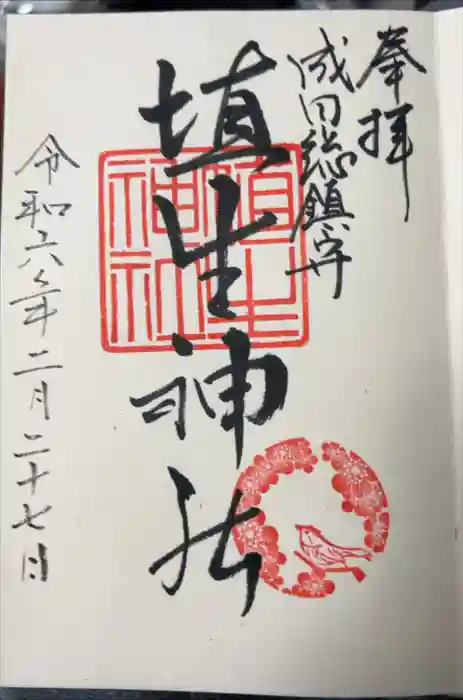 奉拝
成田総鎮守
埴生神社
埴生神社
令和六年二月二十七日